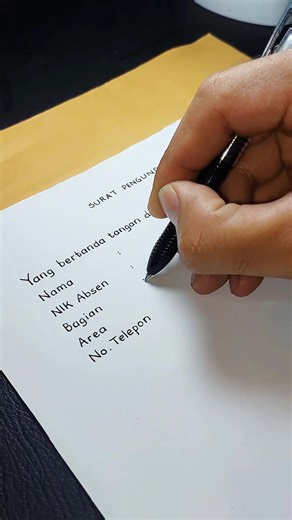 SURAT PENGUND
Yang bertanda tangan d
Nama :
NIK Absen :
Bagian
Area
No. Telepon